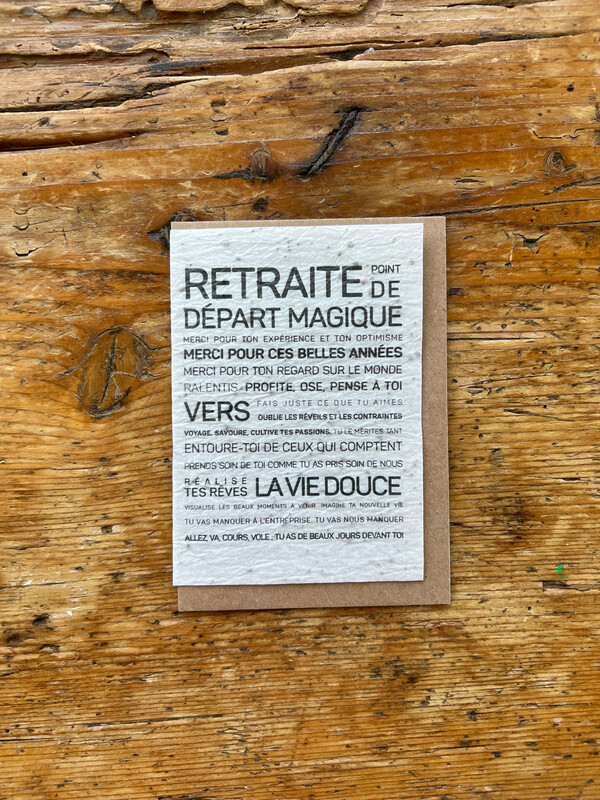 RETRAITE POINT DE
DÉPART MAGIQUE
MERCI POUR TON EXPÉRIENCE ET TON OPTIMISME
MERCI POUR CES BELLES ANNÉES
MERCI POUR TON REGARD SUR LE MONDE
RALENTIS. PROFITE, OSE, PENSE À TOI
VERS FAIS JUSTE CE QUE TU AIMES
OUBLIE LES RÉVEILS ET LES CONTRAINTES
VOYAGE, SAVOURE, CULTIVE TES PASSIONS, TU LE MÉRITES TANT
ENTOURE-TOI DE CEUX QUI COMPTENT
PRENDS SOIN DE TOI COMME TU AS PRIS SOIN DE NOUS
RÉALISE TES RÊVES LA VIE DOUCE
VISUALISE LES BEAUX MOMENTS À VENIR. IMAGINE TA NOUVELLE VIE
TU VAS MANQUER À L'ENTREPRISE. TU VAS NOUS MANQUER
ALLEZ, VA, COURS, VOLE ; TU AS DE BEAUX JOURS DEVANT TOI